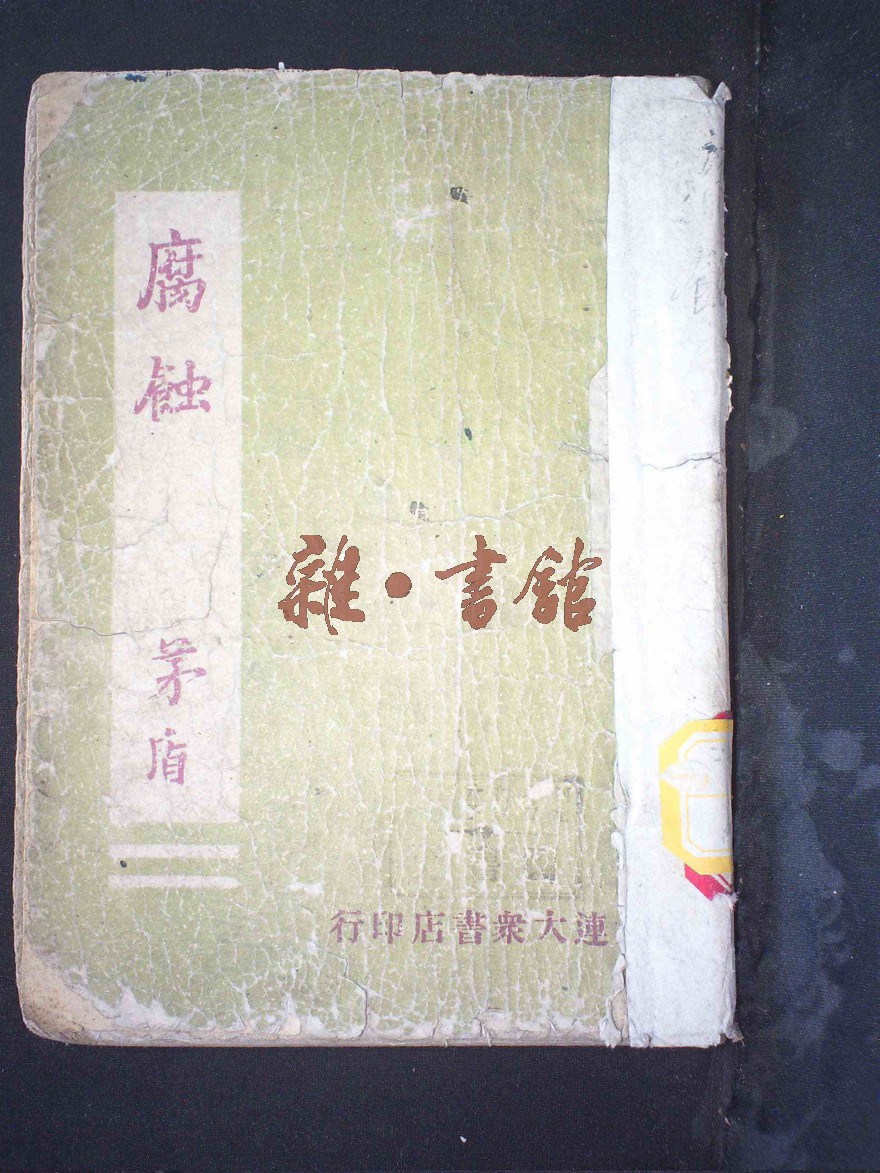 腐蝕
茅盾
連大衆書店印行
雜·書館